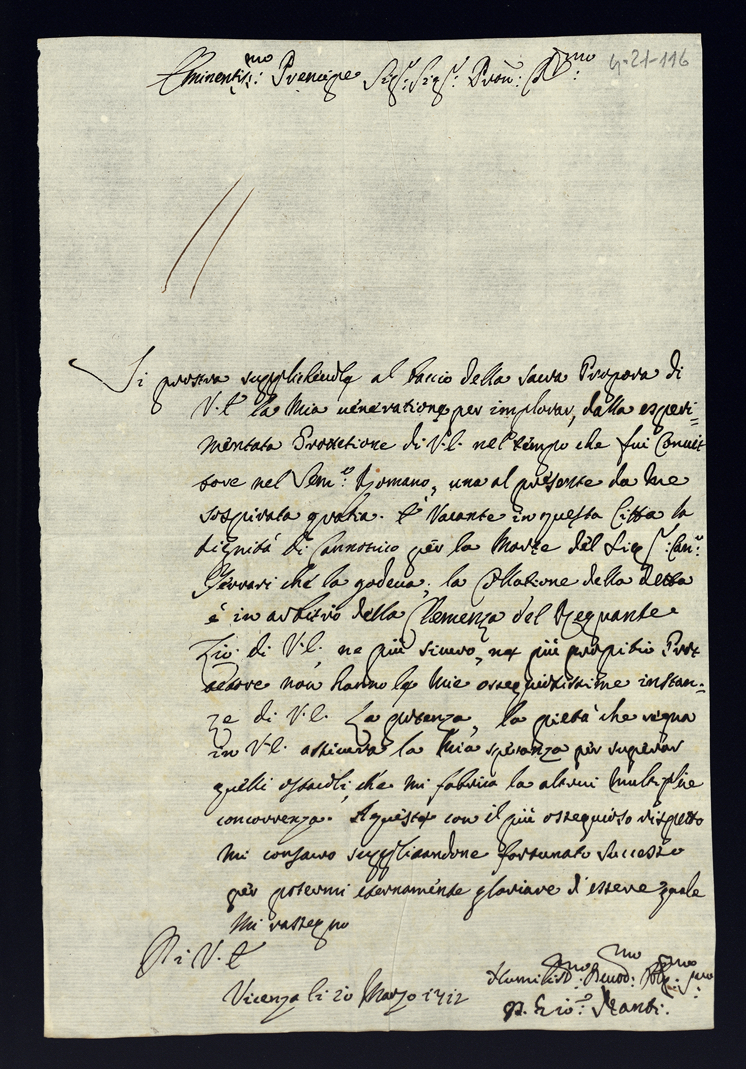 4-21-116
Eminentis:mo Prencipe Sigr: Sigr: Pron: Colmo:
Si prostra supplichevole al baccio della sacra Porpora di
V.E. la Mia veneratione per implorar, dalla esperi=
mentata Protetione di V.E. nel tempo che fui Convit
tore nel Sem:o Romano, una al presente da me
sospirata gratia. E' Vacante in questa Citta la
dignità di Cannonico per la Morte del Sigr: Can:co
Ferrari che la godeva; la Collatione della detta
è in arbitrio della Clemenza del Regnante
Zio di V.E. ne più sicuro, ne più propitio Prot
tetore non hanno le Mie ossequiosissime instan=
ze di V.E. La potenza, la pietà che regna
in V.E. assicura la Mia speranza per superar
quelli ostacoli, che mi fabrica la altrui multiplice
concorrenza. A questa con il più ossequioso rispetto
mi consacro supplicandone fortunato successo
per potermi eternamente gloriare d'essere quale
Mi rassegno
Di V.E.
Vicenza li 20 Marzo 1712
Humilis:mo Devot:mo Oblig:mo Ser:
Gio: